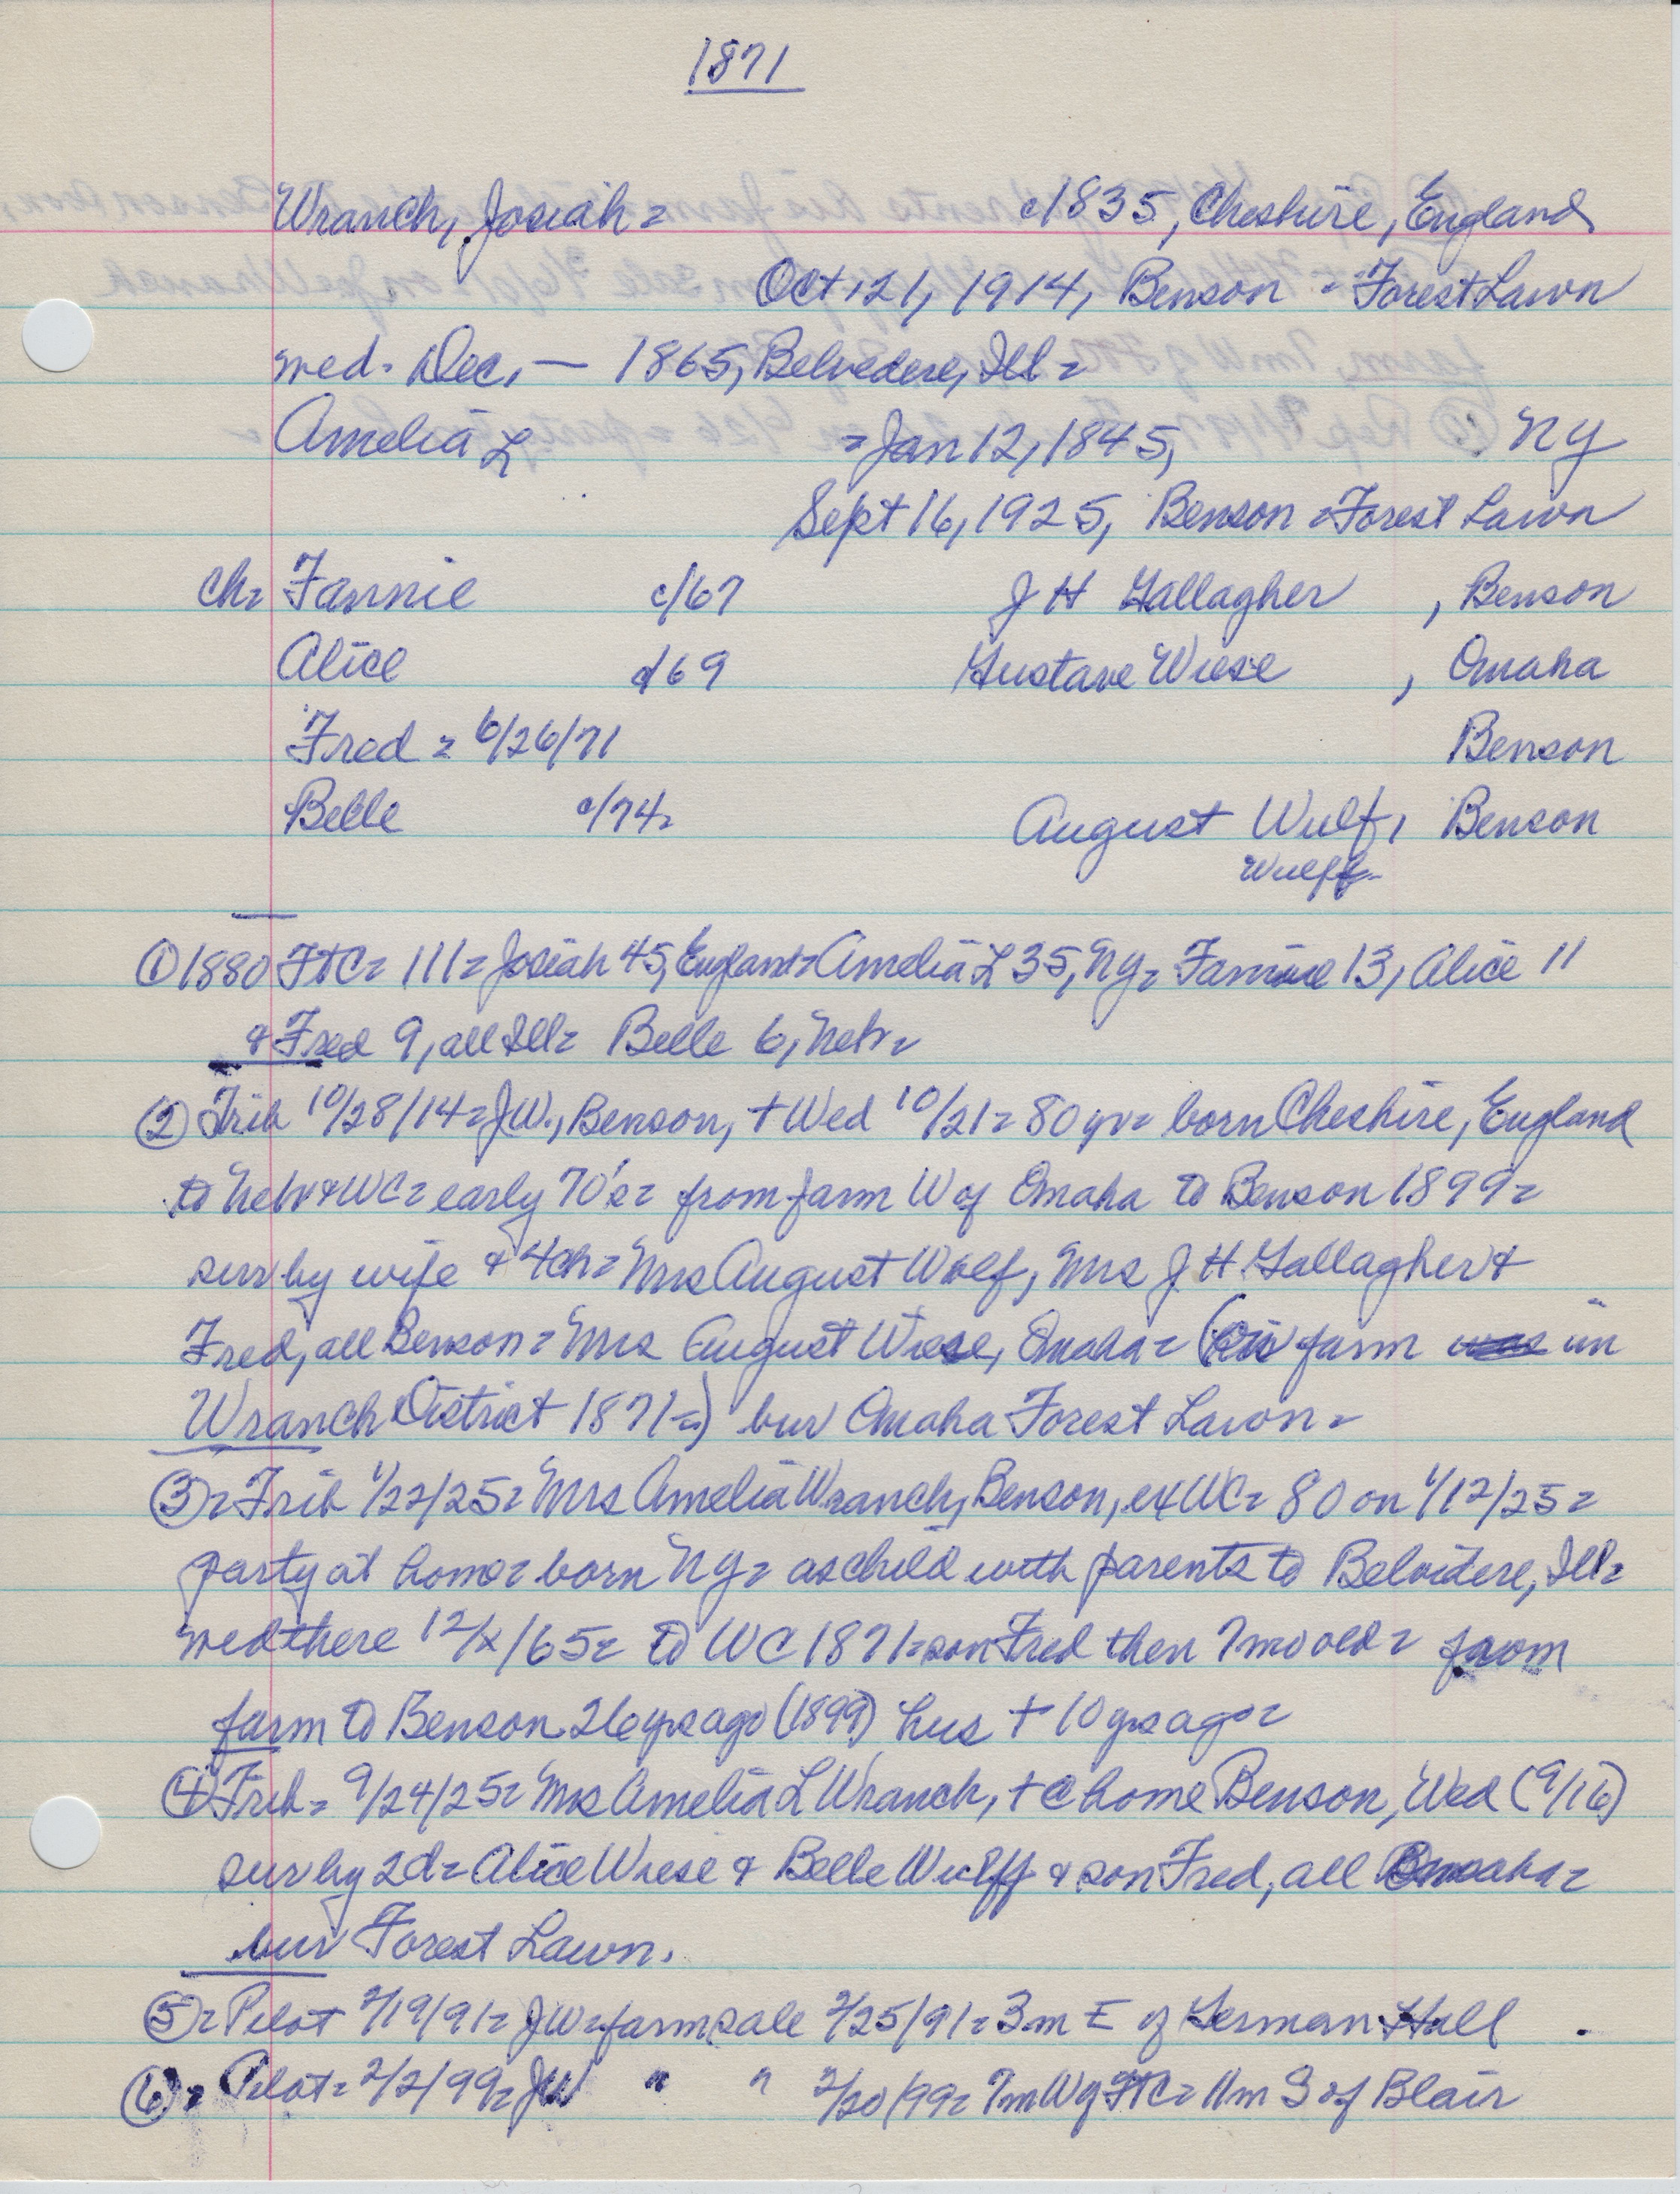 1871
Wranch, Josiah = c/1835, Cheshire, England
Oct. 21, 1914, Benson = Forest Lawn
med. Dec, — 1865, Belvedere, Ill =
Amelia L = Jan 12, 1845, NY
Sept 16, 1925, Benson = Forest Lawn
ch= Fannie c/67 J H Gallagher, Benson
Alice c/69 Gustave Wiese, Omaha
Fred = 6/26/71 Benson
Belle c/74= August Wulf, Benson
Wulff
① 1880 FtC= 111= Josiah 45, England= Amelia L 35, NY= Fannie 13, Alice 11
& Fred 9, all Ill= Belle 6, Nebr=
② Trib 10/28/14= JW., Benson, + Wed 10/21= 80 yr= born Cheshire, England
to Nebr & WC= early 70's= from farm W of Omaha to Benson 1899=
sur by wife & 4 ch= Mrs August Wolf, Mrs J H Gallagher &
Fred, all Benson= Mrs August Wiese, Omaha= (his farm was in
Wranch District 1871=) bur Omaha Forest Lawn=
③= Trib 1/22/25= Mrs Amelia Wranch, Benson, ex WC= 80 on 1/12/25=
party at home= born NY= as child with parents to Belvidere, Ill=
med there 12/x/65= to WC 1871= son Fred then 7 mo old= from
farm to Benson 26 yrs ago (1899) hus + 10 yrs ago=
④ Trib= 9/24/25= Mrs Amelia L Wranch, + @ home Benson, Wed (9/16)
sur by 2d= Alice Wiese & Belle Wulff & son Fred, all Omaha=
bur Forest Lawn.
⑤= Pilot 2/19/91= JW= farm sale 2/25/91= 3 m E of German Hall
⑥= Pilot= 2/2/99= JW " " 2/20/99= 7 m W of FtC= 11 m S of Blair